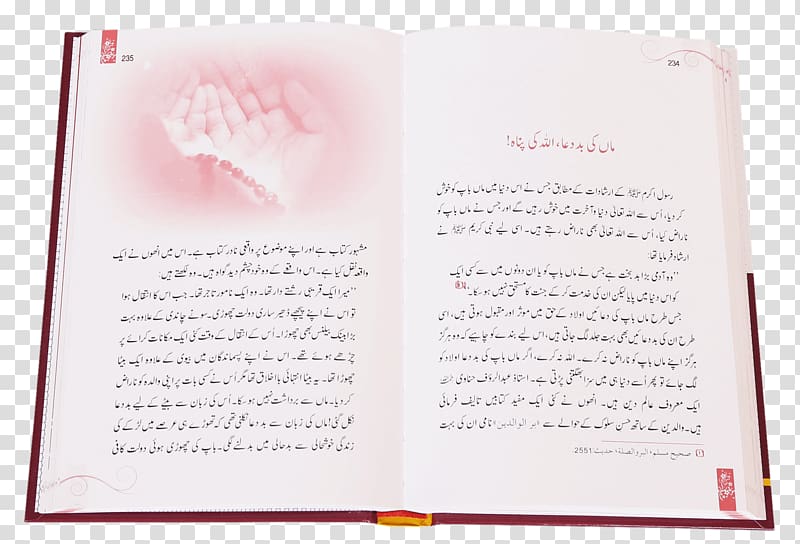 234
ماں کی بددعا، اللہ کی پناہ!
رسول اکرم ﷺ کے ارشادات کے مطابق جس نے اس دنیا میں ماں باپ کو خوش
کر دیا، اُس سے اللہ تعالیٰ دنیا و آخرت میں خوش رہیں گے اور جس نے ماں باپ کو
ناراض کیا، اُس سے اللہ تعالیٰ بھی ناراض رہتے ہیں۔ اسی لیے نبی کریم ﷺ نے
ارشاد فرمایا تھا:
’’وہ آدمی بڑا بد بخت ہے جس نے ماں باپ کو یا ان دونوں میں سے کسی ایک
کو اس دنیا میں پایا لیکن ان کی خدمت کر کے جنت کا مستحق نہیں ہو سکا۔‘‘
جس طرح ماں باپ کی دعائیں اولاد کے حق میں موثر اور مقبول ہوتی ہیں، اسی
طرح ان کی بددعائیں بھی بہت جلد لگ جاتی ہیں، اس لیے بندے کو چاہیے کہ وہ ہرگز
ہرگز اپنے ماں باپ کو ناراض نہ کرے۔ اللہ نہ کرے، اگر ماں باپ کی بددعا اولاد کو
لگ جائے تو پھر اُسے دنیا ہی میں سزا بھگتنی پڑتی ہے۔ استاذ عبدالرؤف حناوی
ایک معروف عالم دین ہیں۔ انھوں نے کئی ایک مفید کتابیں تالیف فرمائی
ہیں۔ والدین کے ساتھ حسن سلوک کے حوالے سے (بر الوالدین) نامی ان کی بہت
صحیح مسلم، البر والصلة، حدیث: 2551
235
مشہور کتاب ہے اور اپنے موضوع پر واقعی نادر کتاب ہے۔ اس میں انھوں نے ایک
واقعہ نقل کیا ہے۔ اس واقعے کے وہ خود چشم دید گواہ ہیں۔ وہ لکھتے ہیں:
’’میرا ایک قریبی رشتے دار تھا۔ وہ ایک نامور تاجر تھا۔ جب اس کا انتقال ہوا
تو اس نے اپنے پیچھے ڈھیر ساری دولت چھوڑی۔ سونے چاندی کے علاوہ بہت
بڑا بینک بیلنس بھی چھوڑا۔ اُس کے انتقال کے وقت کئی ایک مکانات کرائے پر
چڑھے ہوئے تھے۔ اس نے اپنے پسماندگان میں بیوی کے علاوہ ایک بیٹا
چھوڑا تھا۔ یہ بیٹا انتہائی بااخلاق تھا مگر اُس نے کسی بات پر اپنی والدہ کو ناراض
کر دیا۔ ماں سے برداشت نہیں ہو سکا۔ اُس کی زبان سے بیٹے کے لیے بددعا
نکل گئی! ماں کی زبان سے بددعا نکلنی تھی کہ تھوڑے ہی عرصے میں لڑکے کی
زندگی خوشحالی سے بدحالی میں بدلنے لگی۔ باپ کی چھوڑی ہوئی دولت کافی